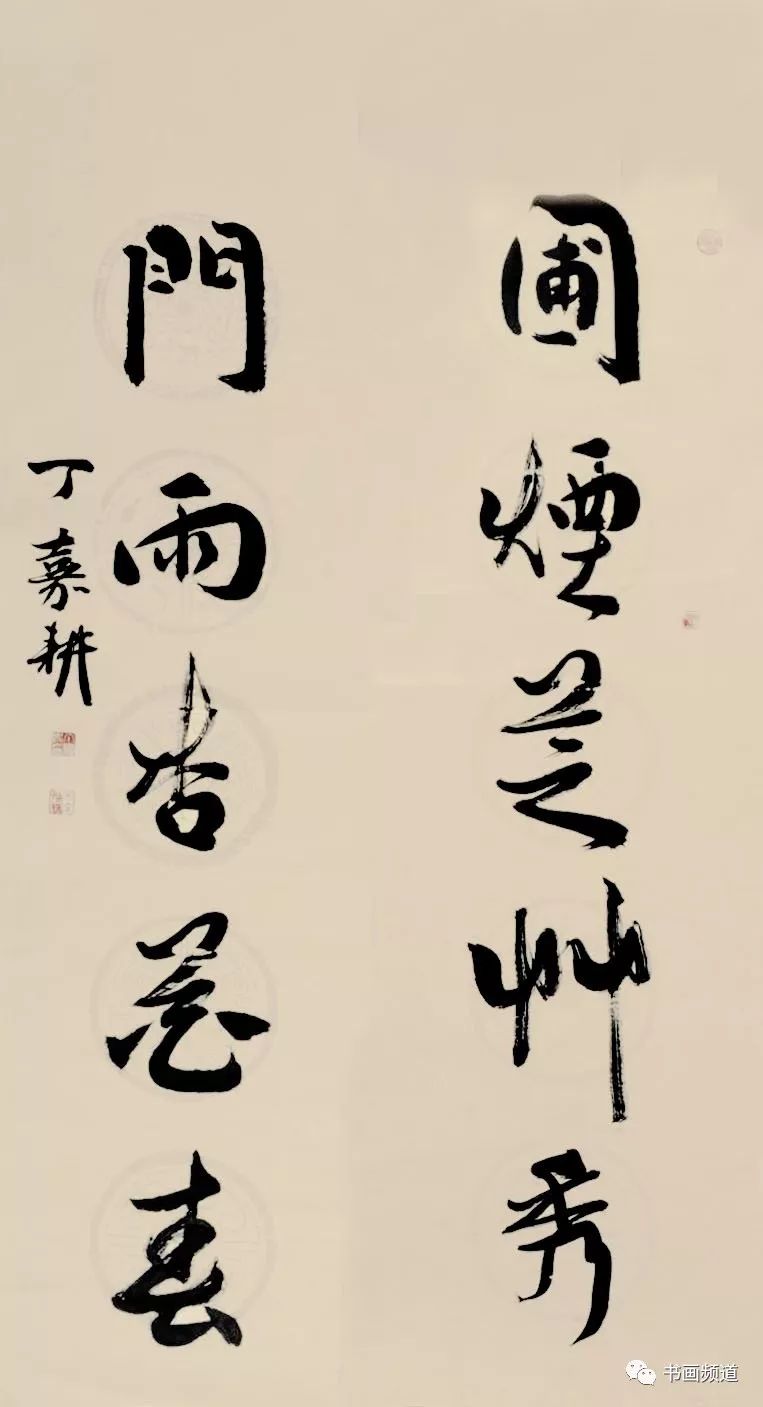 圃煙芝艸秀
門雨杏花春
丁嘉耕
书画频道